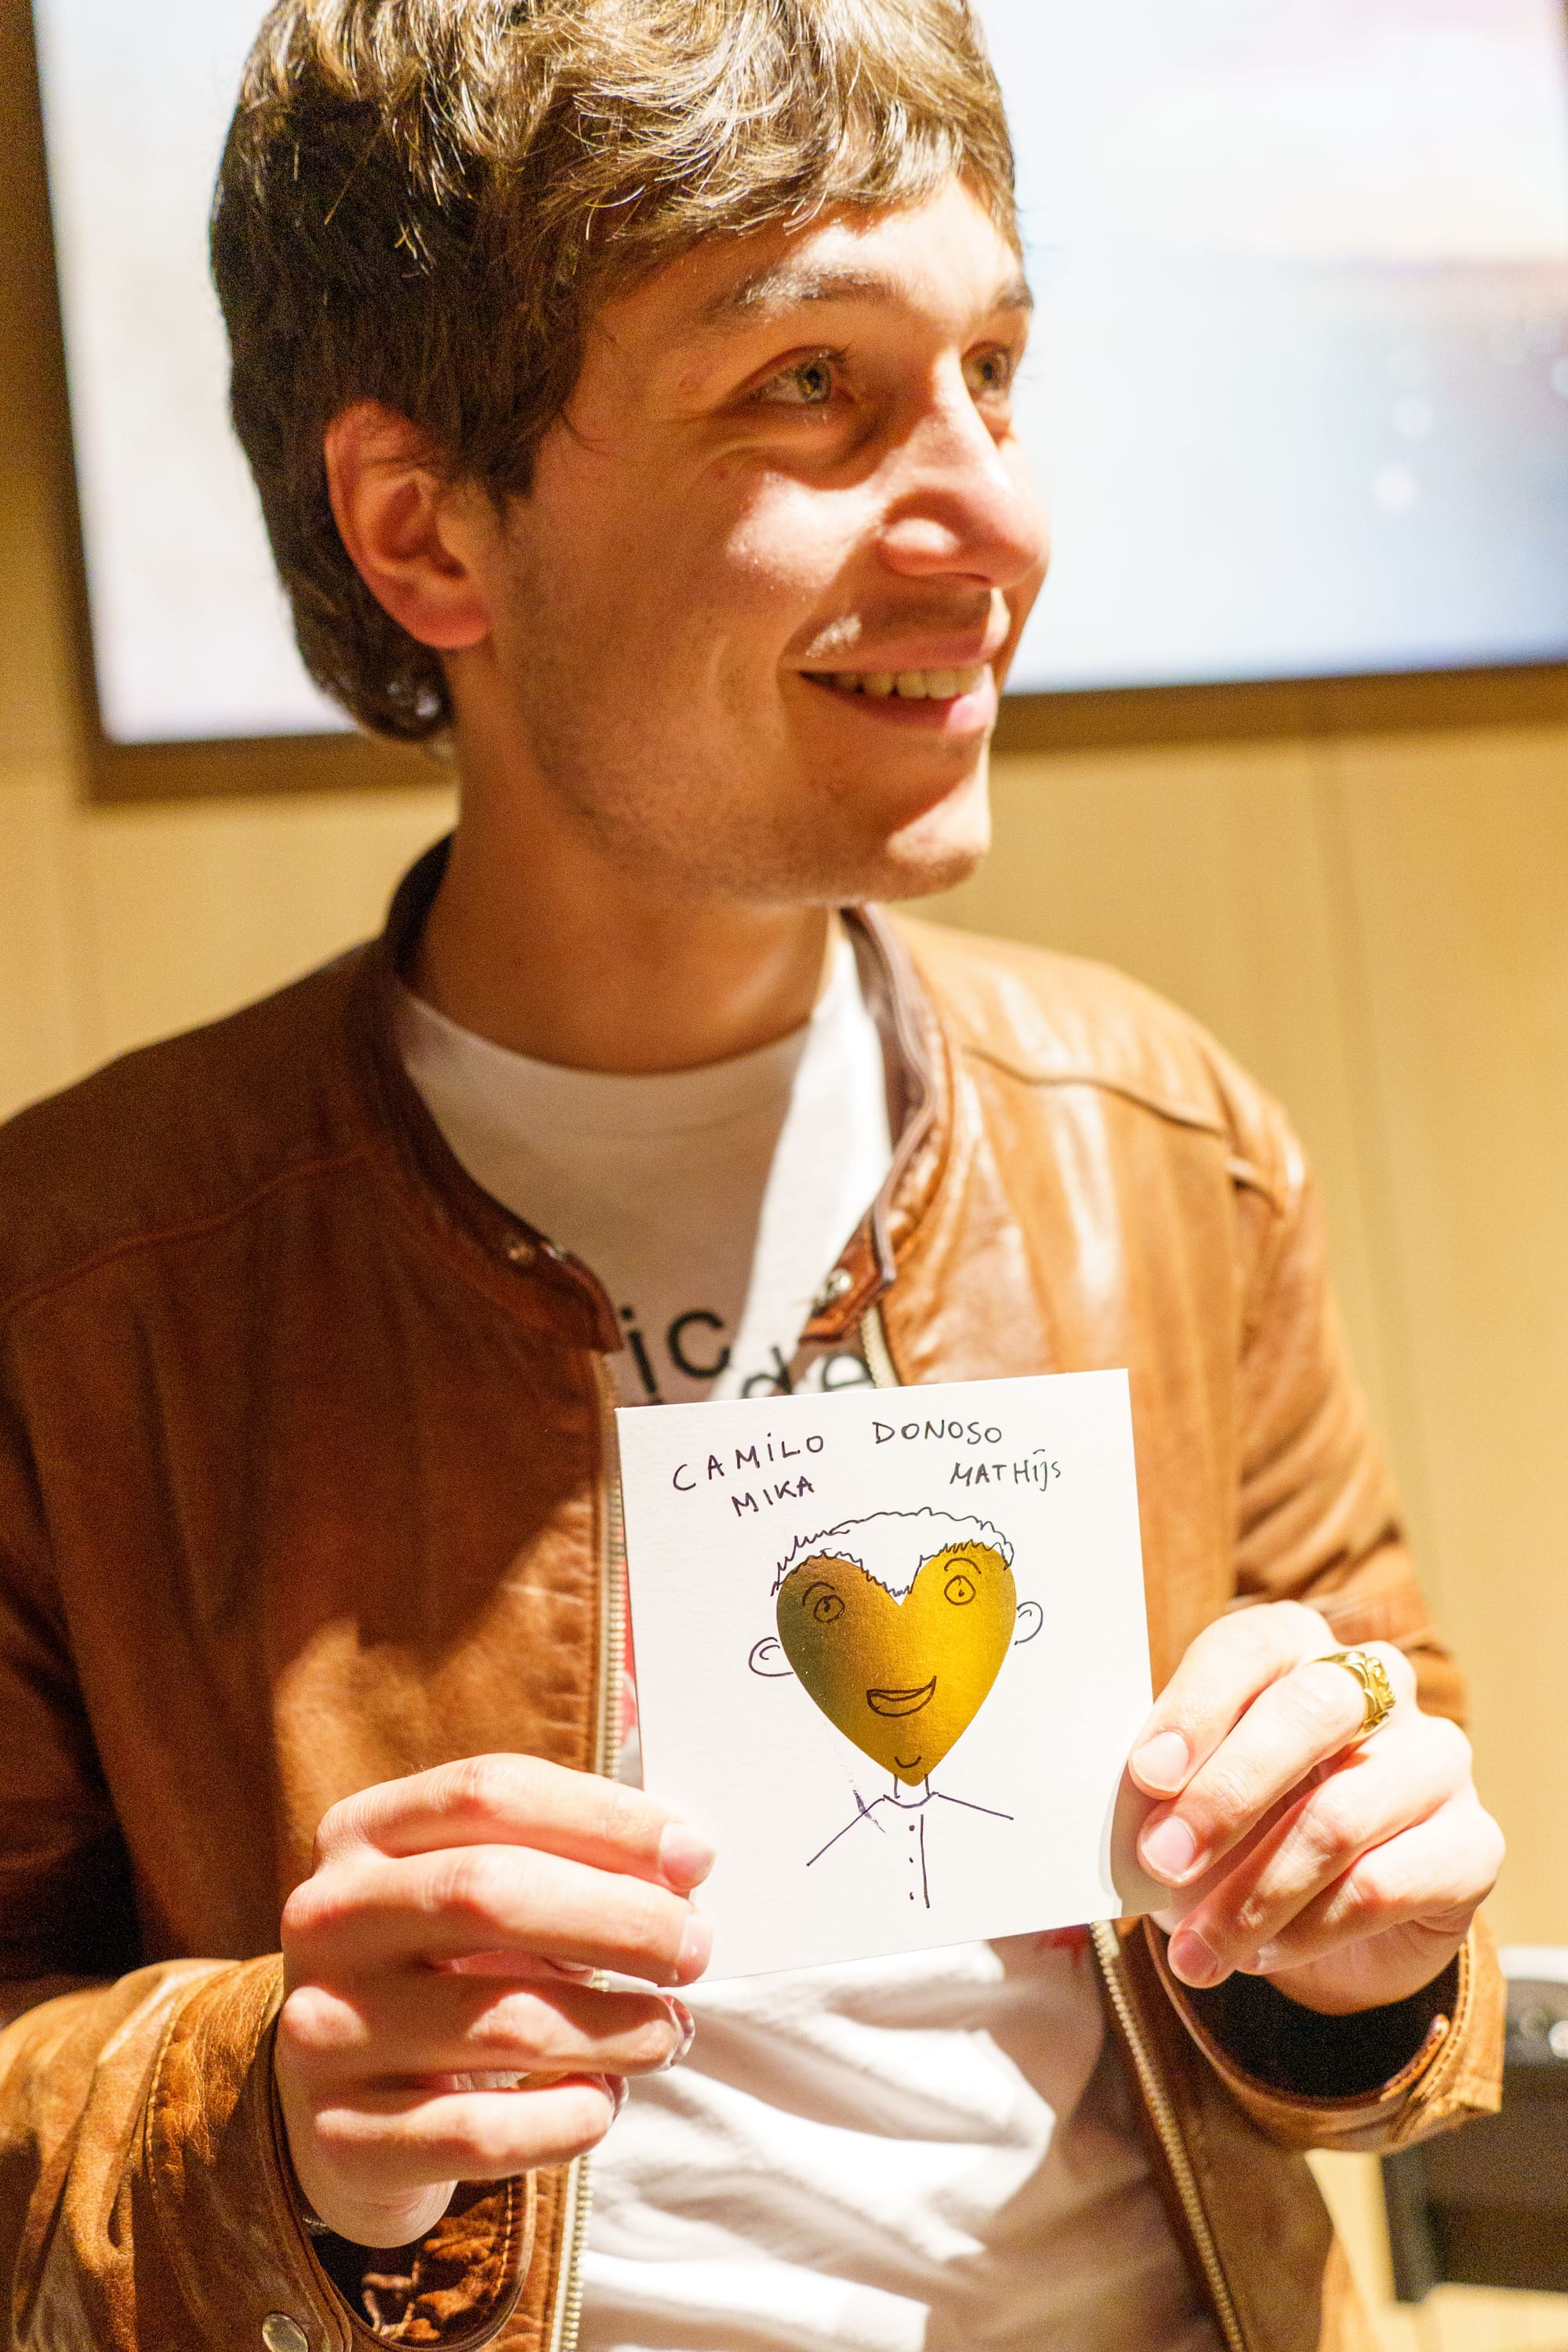 ic
de
CAMiLO DONOSO
MIKA MATHIJS